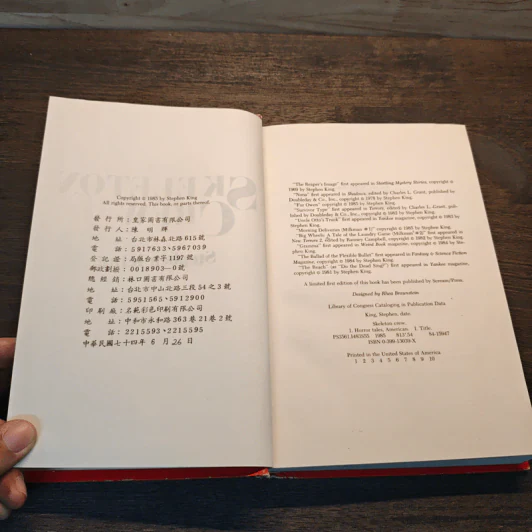 Copyright © 1985 by Stephen King
All rights reserved. This book, or parts thereof,
發行所：皇家圖書有限公司
發行人：陳明輝
地址：台北市林森北路615號
電話：5917633·5967039
登記證：局版台業字1197號
郵政劃撥：0018903—0號
總經銷：林口圖書有限公司
地址：台北市中山北路三段54之3號
電話：5951565·5912900
印刷廠：名範彩色印刷有限公司
地址：中和市永和路363巷21弄2號
電話：2215593·2215595
中華民國七十四年6月26日
"The Reaper's Image" first appeared in Startling Mystery Stories, copyright ©
1969 by Stephen King.
"Nona" first appeared in Shadows, edited by Charles L. Grant, published by
Doubleday & Co., Inc., copyright © 1978 by Stephen King.
"For Owen" copyright © 1985 by Stephen King.
"Survivor Type" first appeared in Terrors, edited by Charles L. Grant, published
"Uncle Otto's Truck" first appeared in Yankee magazine, copyright © 1983 by
Stephen King.
"Morning Deliveries (Milkman #1)" copyright © 1985 by Stephen King.
"Big Wheels: A Tale of the Laundry Game (Milkman #2)" first appeared in
New Terrors 2, edited by Ramsey Campbell, copyright ©
"Gramma" first appeared in Weird Book magazine, copyright © 1984 by Stephen
King.
"The Ballad of the Flexible Bullet" first appeared in Fantasy & Science Fiction
Magazine, copyright © 1984 by Stephen King.
"The Reach" (as "Do the Dead Sing?") first appeared in Yankee magazine,
copyright © 1981 by Stephen King.
A limited first edition of this book has been published by Scream/Press.
Designed by Rhea Braunstein
Library of Congress Cataloging in Publication Data
King, Stephen, data.
Skeleton crew.
1. Horror tales, American. I. Title.
PS3561.I483S55 1985 813'.54 84-15947
ISBN 0-399-13039-X
Printed in the United States of America
1 2 3 4 5 6 7 8 9 10